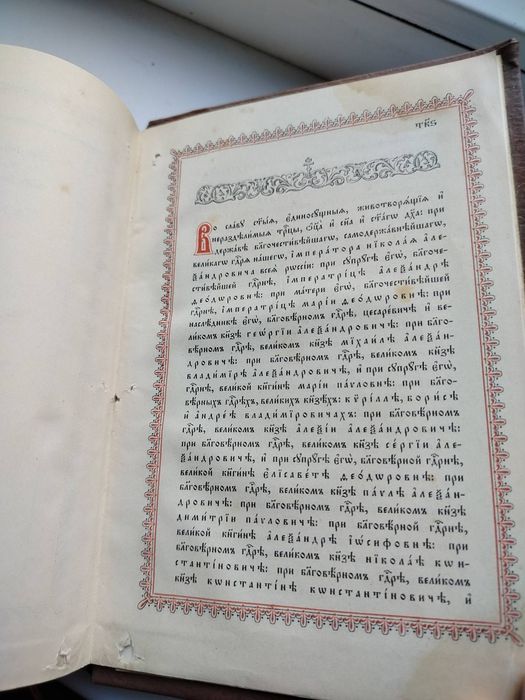 тк҃ѕ
Во славу ст҃ыѧ, є҆диносущныѧ, животворѧ́щїѧ и҆
нераздѣ́лимыѧ трⷪ҇цы, ѻ҆ц҃а̀ и҆ сн҃а и҆ ст҃а́гѡ дх҃а: при
держа́вѣ бл҃гочести́вѣйшагѡ, самодержа́внѣйшагѡ,
вели́кагѡ гдⷭ҇рѧ на́шегѡ, і҆мпера́тора нїкола́ѧ а҆ле-
ѯа́ндровича всеѧ̀ рѡссі́и: при сꙋпрꙋ́гѣ є҆гѡ̀, бл҃гоче-
сти́вѣйшей гдⷭ҇рнѣ, і҆мператри́цѣ а҆леѯа́ндрѣ
ѳео́дѡровнѣ: при ма́тери є҆гѡ̀, бл҃гочести́вѣйшей
гдⷭ҇рнѣ, і҆мператри́цѣ марі́и ѳео́дѡровнѣ: при
наслѣ́дникѣ є҆гѡ̀, бл҃говѣ́рномъ гдⷭ҇рѣ, цесаре́вичѣ и҆ ве-
ли́комъ кн҃зѣ геѡ́ргїи а҆леѯа́ндровичѣ: при бл҃го-
вѣ́рномъ гдⷭ҇рѣ, вели́комъ кн҃зѣ мїхаи́лѣ а҆леѯа́н-
дровичѣ: при бл҃говѣ́рномъ гдⷭ҇рѣ, вели́комъ кн҃зѣ
влади́мїрѣ а҆леѯа́ндровичѣ, и҆ при сꙋпрꙋ́гѣ є҆гѡ̀,
гдⷭ҇рнѣ, вели́кой кн҃ги́нѣ марі́и па́ѵловнѣ: при бл҃го-
вѣ́рныхъ гдⷭ҇рѣхъ, вели́кихъ кн҃зѣхъ: кѷрі́ллѣ, бори́сѣ
и҆ а҆ндре́ѣ влади́мїровичахъ: при бл҃говѣ́рномъ
гдⷭ҇рѣ, вели́комъ кн҃зѣ а҆леѯі́и а҆леѯа́ндровичѣ:
при бл҃говѣ́рномъ гдⷭ҇рѣ, вели́комъ кн҃зѣ се́ргїи а҆ле-
ѯа́ндровичѣ, и҆ при сꙋпрꙋ́гѣ є҆гѡ̀, бл҃говѣ́рной гдⷭ҇рнѣ,
вели́кой кн҃ги́нѣ є҆лїсаве́тѣ ѳео́дѡровнѣ: при
бл҃говѣ́рномъ гдⷭ҇рѣ, вели́комъ кн҃зѣ па́ѵлѣ а҆леѯа́н-
дровичѣ: при бл҃говѣ́рномъ гдⷭ҇рѣ, вели́комъ кн҃зѣ
дими́трїи па́ѵловичѣ: при бл҃говѣ́рной гдⷭ҇рнѣ,
вели́кой кн҃ги́нѣ а҆леѯа́ндрѣ і҆ѡ́сифовнѣ: при
бл҃говѣ́рномъ гдⷭ҇рѣ, вели́комъ кн҃зѣ нїкола́ѣ кѡн-
станті́новичѣ: при бл҃говѣ́рномъ гдⷭ҇рѣ, вели́комъ
кн҃зѣ кѡнстанті́нѣ кѡнстанті́новичѣ, и҆